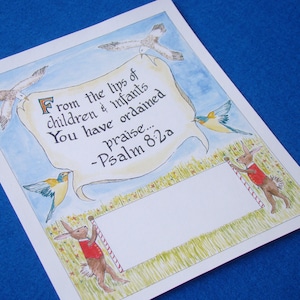 From the lips of
children & infants
You have ordained
praise...
-Psalm 8:2a